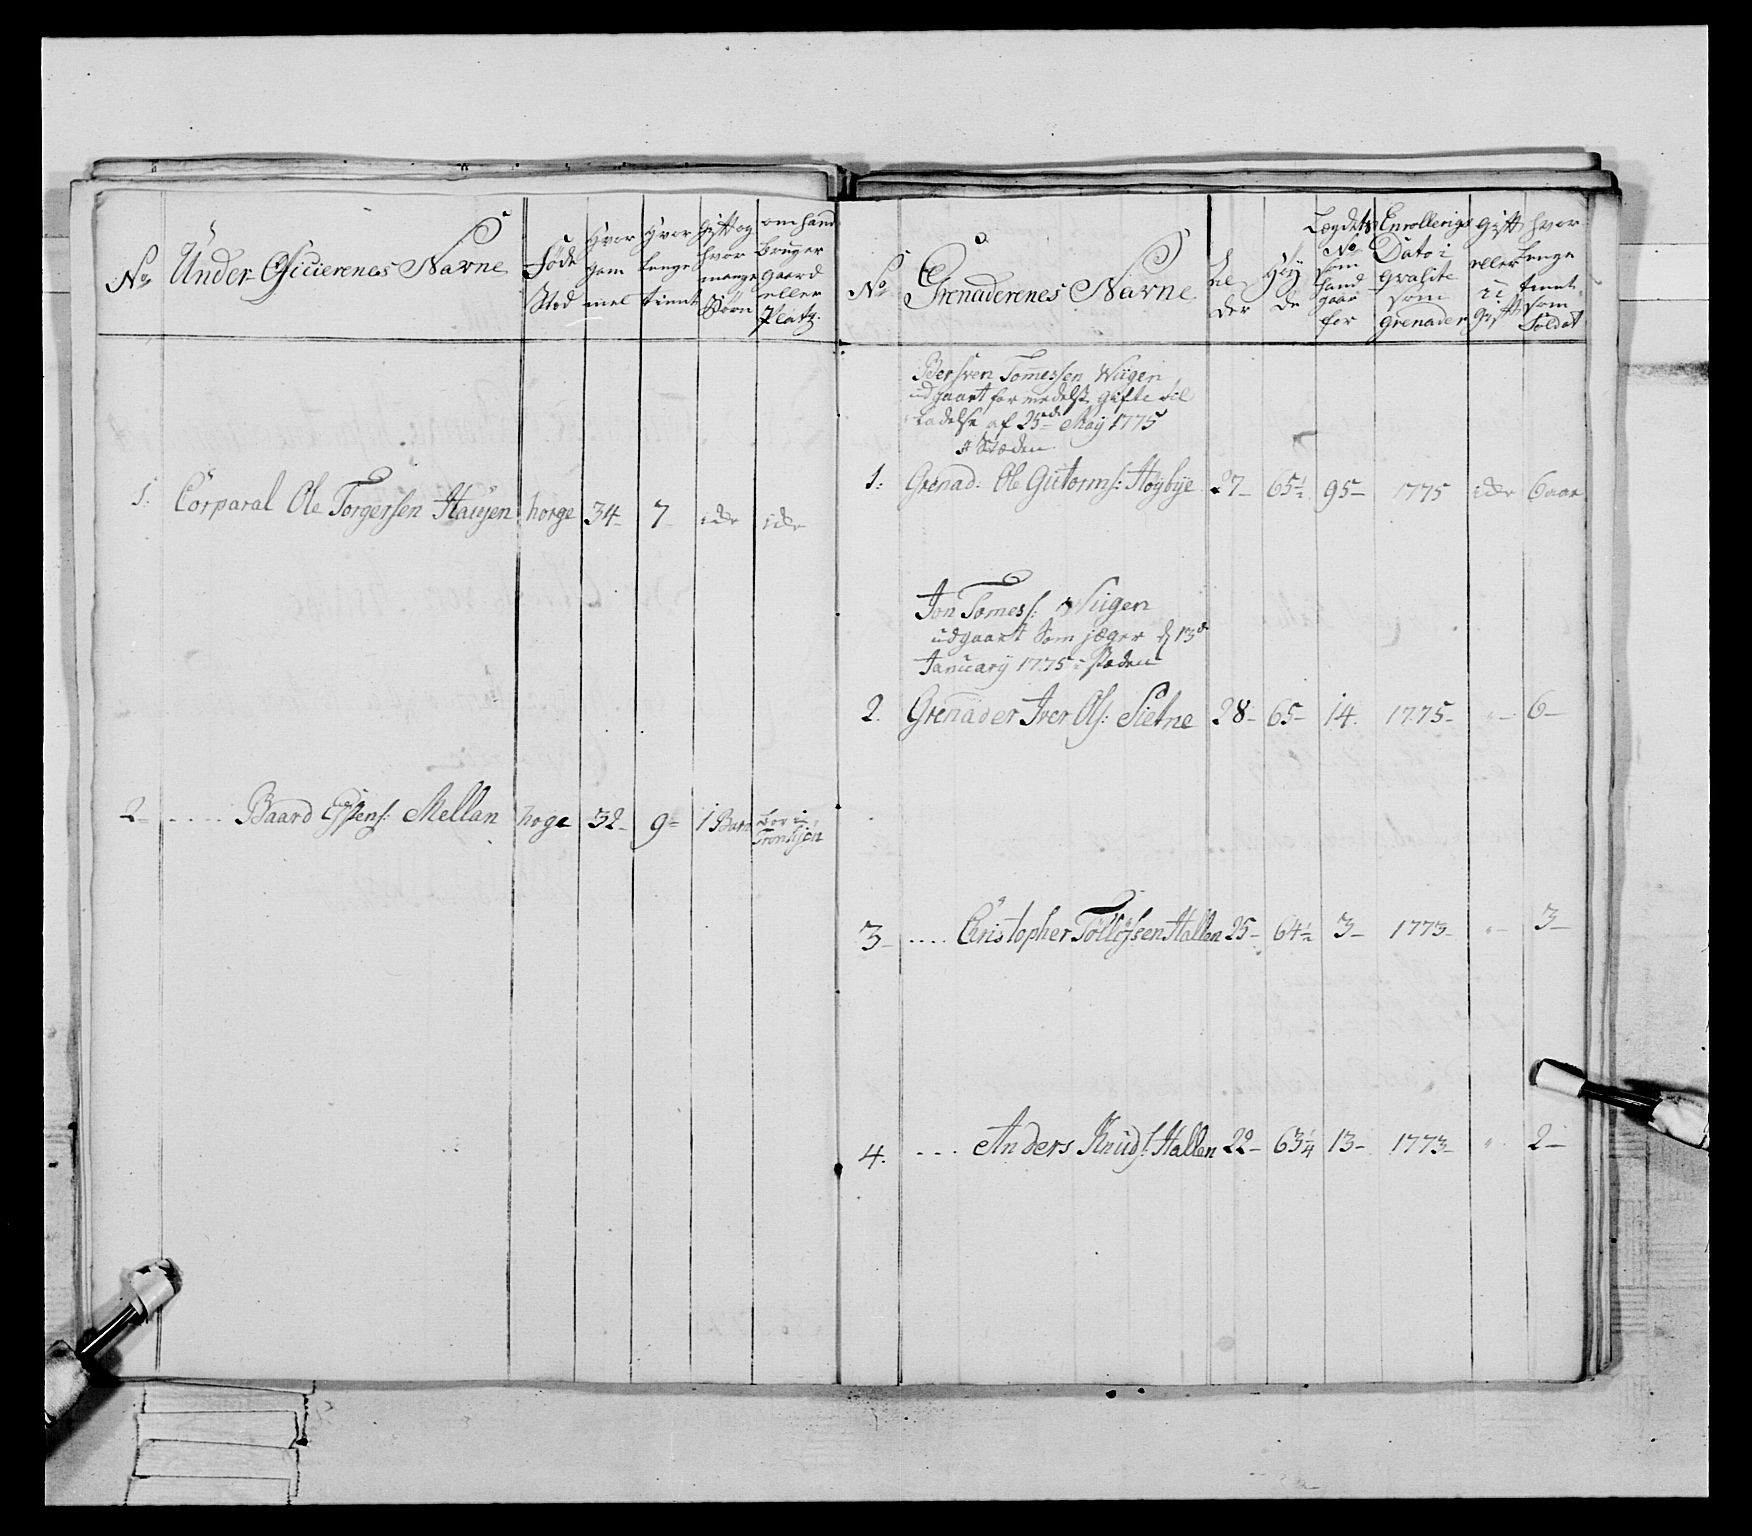 No
Under Officierenes Navne
Føde
Sted
Hvor
gam
mel
Hvor
lenge
tient
Gift og
hvor
mange
Børn
om hand
bruger
gaard
eller
Platz.
1. Corparal Ole Torgersen Hausen horge 34– 7– icke icke
2– ..... Baard Espens: Mellan horge 32– 9– 1 Barn boer i Trondhjen
No
Grenaderenes Navne
Al
der
Høy
de
Lægdets
No
som
hand
gaar
for
Enrollerigs
Dato i
qvalite
som
grenader
Gift
eller
u
Gift
hvor
lenge
tient
som
Soldat
Peer Sven Tomessen Wiigen
udgaart formedelst gifte til
ladelse af 25de May 1775
i Stæden
1: Grenad: Ole Gutorms: Høybye 27– 65½ 95– 1775 icke 6 aar
Jon Tomess: Wiigen
udgaart Som jæger d 13de
January 1775 i stæden
2. Grenader Iver Ols: Sietne 28– 65– 14. 1775– " – 6–
3– .... Christopher Tollofsen Hallen 25– 64½ 3– 1773– " – 3–
4. ... Anders Knuds: Hallen 22– 63¼ 13– 1773– " 2–